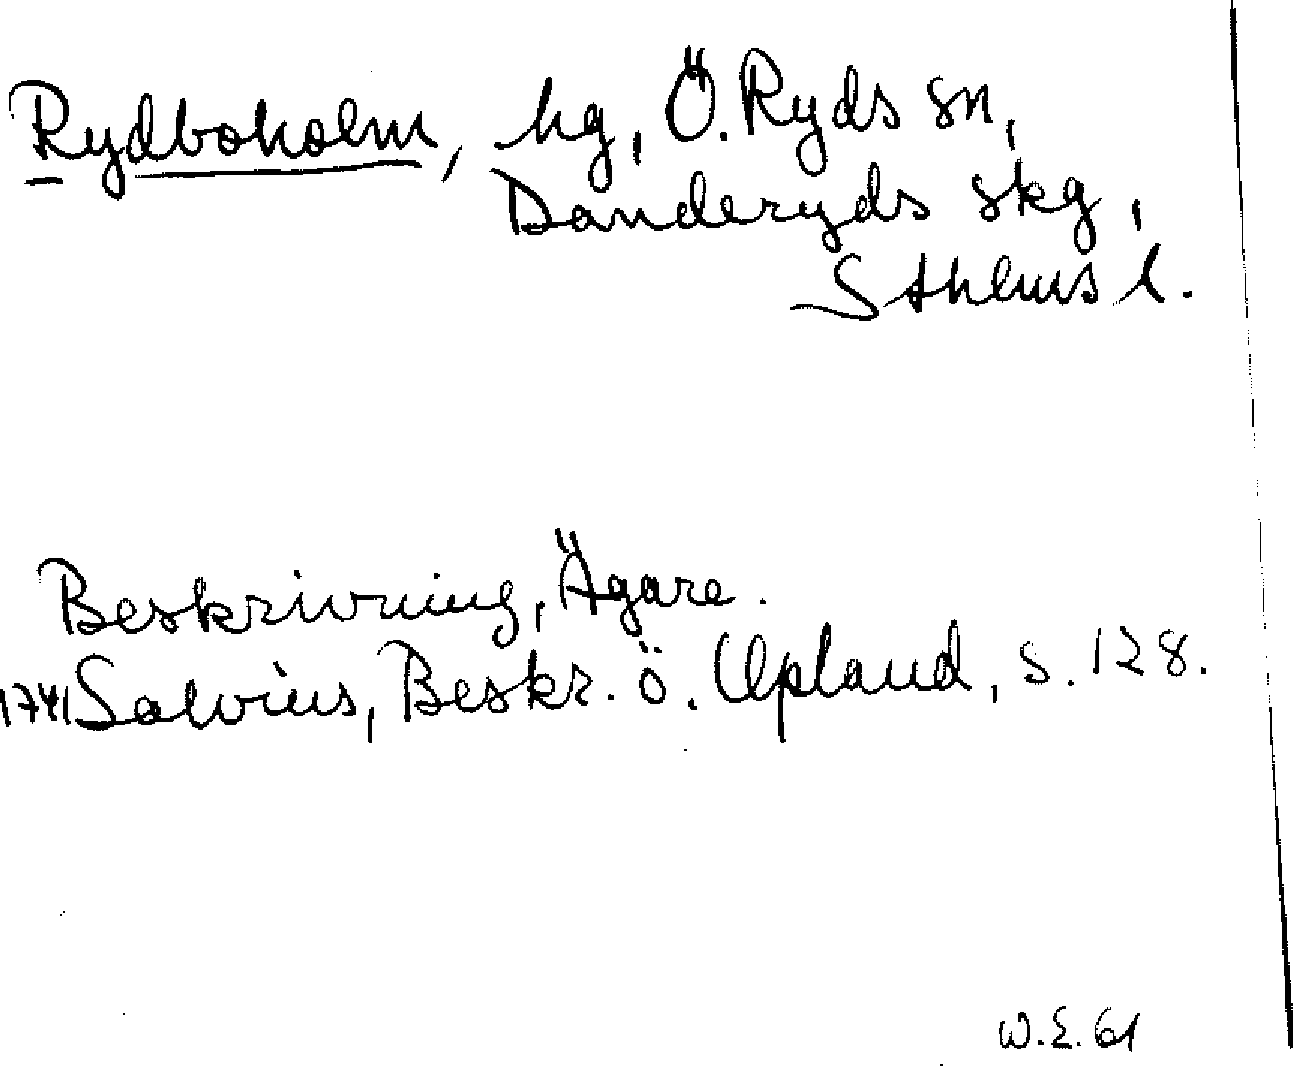 Rydboholm, hg, Ö. Ryds sn,
Danderyds skg,
Sthlms l.
Beskrivning, Ägare.
1741 Salvius, Beskr. ö. Upland, s. 128.
W.E. 61